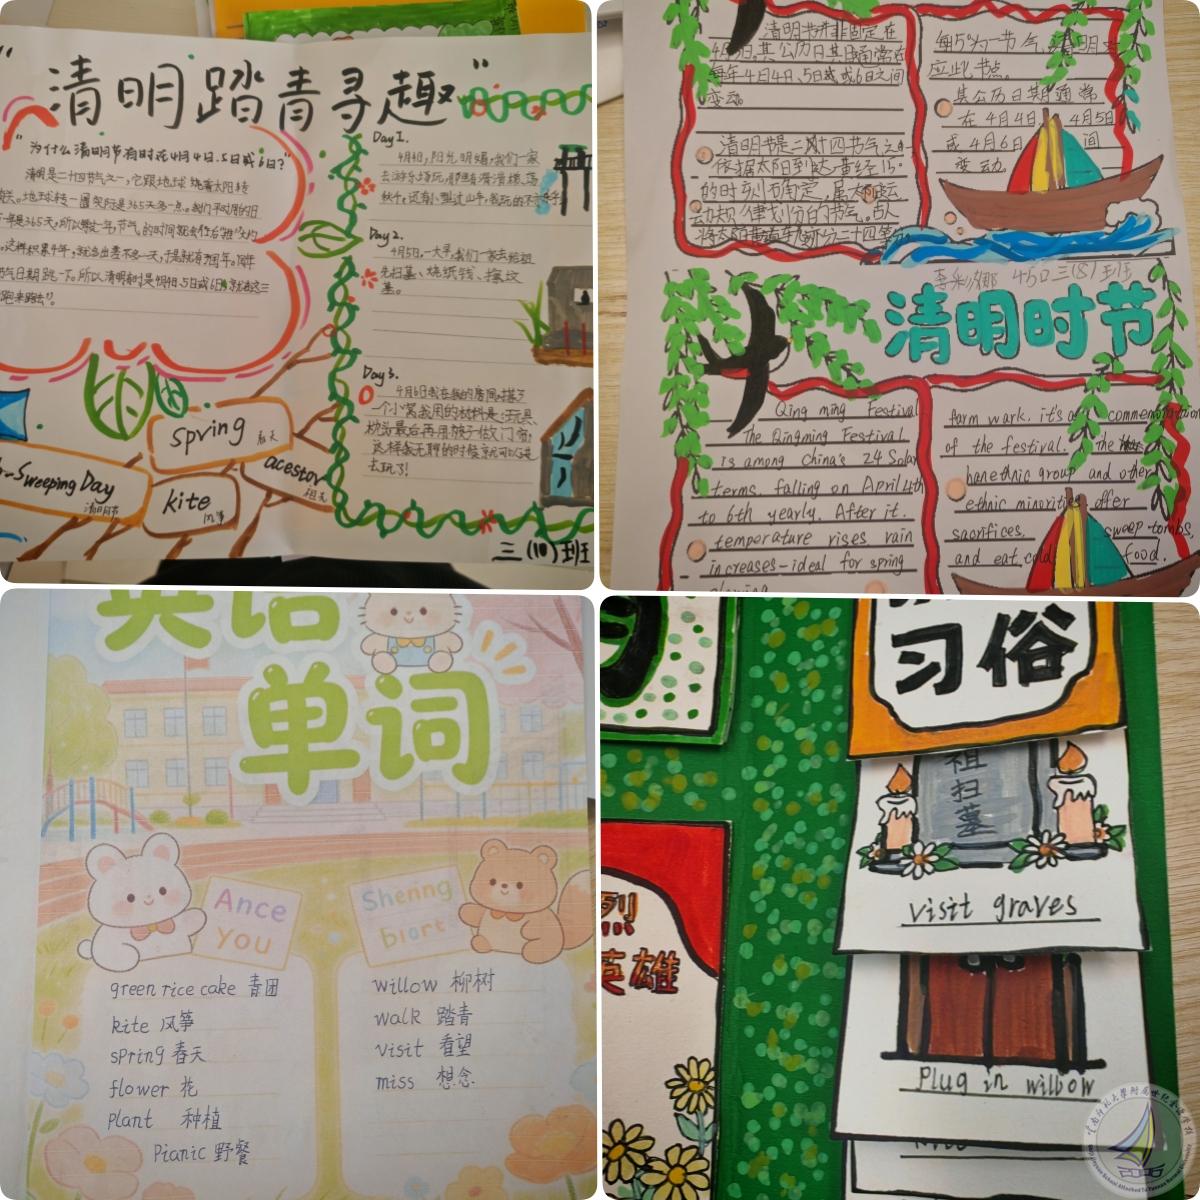 "清明踏青寻趣"
"为什么清明节有时在4月4日、5日或6日?"
清明是二十四节气之一,它跟地球绕着太阳转
有关。地球转一圈实际是365天多一点。我们平时用的日
所以清明有时是4日、5日或6日,就在这三
跑来跑去"。
spring 春天
Sweeping Day
清明节
kite 风筝
acestor
祖先
Day1.
4月4日,阳光明媚,我们一家
去游乐场玩,那里有滑滑梯、荡
秋千,还有小型过山车,我玩的不亦乐乎
Day2.
4月5日,一大早,我们一家去给祖
先扫墓、烧纸钱、挂坟
墓。
Day3.
4月6日我在我的房间搭了
一个小窝我用的材料是:玩具、
枕头最后再用裤子做门帘,
这样我无聊的时候就可以进
去玩了!
三(10)班
清明节并非固定在
4月5日,其公历日期通常在
每年4月4日、5日或6日之间
变动。
清明节是二十四节气之一
依据太阳到达黄经15°
的时刻而确定,属太阳运
动规律划分的节气。古人
将太阳黄道平均分二十四等份
每15°为一节气,清明对
应此节点。
其公历日期通常
在4月4日、4月5日
或4月6日间
变动。
李彩娜 45口三(8)班
清明时节
Qing ming Festival
The Qingming Festival
is among China's 24 Solar
terms. falling on April 4th
to 6th yearly. After it.
temperature rises rain
increases-ideal for spring
farm wark. it's a commemoration
of the festival. the
han ethnic group and other
ethnic minorities offer
sacrifices. sweep tombs,
and eat cold food.
英语
单词
Ance
You
Shening
biort
green rice cake 青团
kite 风筝
spring 春天
flower 花
Plant 种植
Pianic 野餐
willow 柳树
walk 踏青
visit 看望
miss 想念
习俗
祖
扫
墓
visit graves
Plug in willow
烈
英雄